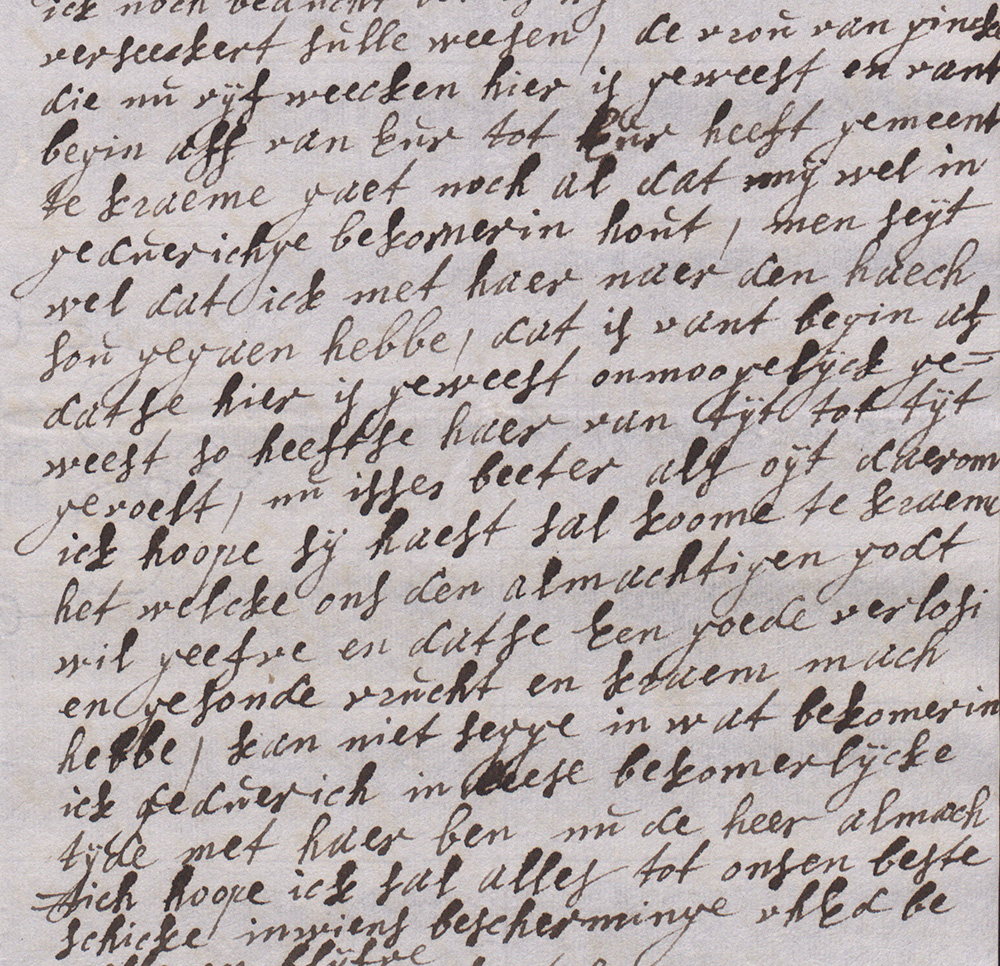 ick noch beducht
verseeckert sulle weesen, de vrou van pinck
die nu vyf weecken hier is geweest en vant
begin aff van Eur tot Eur heeft gemeent
te kraeme gaet noch al dat mij wel in
geduerichge bekomerin hout, men seyt
wel dat ick met haer naer den haech
sou gegaen hebbe, dat is vant begin af
datse hier is geweest onmoogelijck ge=
weest so heeftse haer van tijt tot tijt
gevoelt, nu isser beeter als oijt daerom
ick hoope sij haest sal koome te kraeme
het welcke ons den almachtigen godt
wil geefve en datse Een goede verlosi
en gesonde vrucht en kraem mach
hebbe, kan niet segge in wat bekomerin
ick geduerich in deese bekomerlijcke
tyde met haer ben nu de heer almach
tich hoope ick sal alles tot onsen beste
schicke inwiens bescherminge uhEd be
en blijfve